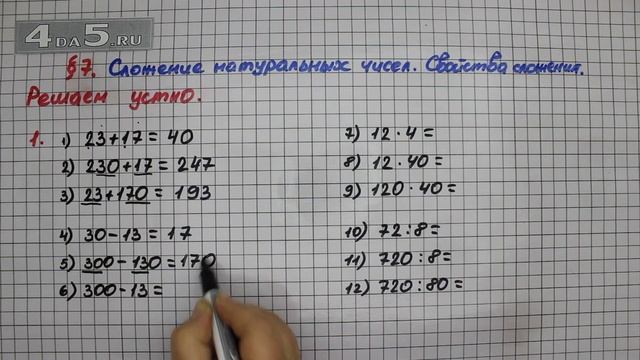 4DA5.RU
§7. Сложение натуральных чисел. Свойства сложения.
Решаем устно.
1. 1) 23+17=40
2) 230+17=247
3) 23+170=193
4) 30-13=17
5) 300-130=170
6) 300-13=
7) 12·4=
8) 12·40=
9) 120·40=
10) 72:8=
11) 720:8=
12) 720:80=